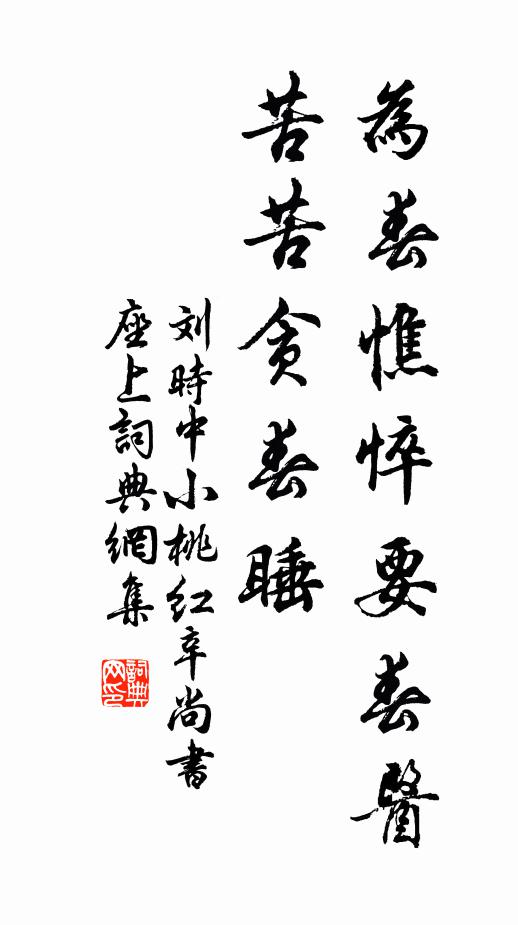 為春憔悴要春醫
苦苦貪春睡
刘時中小桃红辛尚書
座上詞典網集
詞典网印